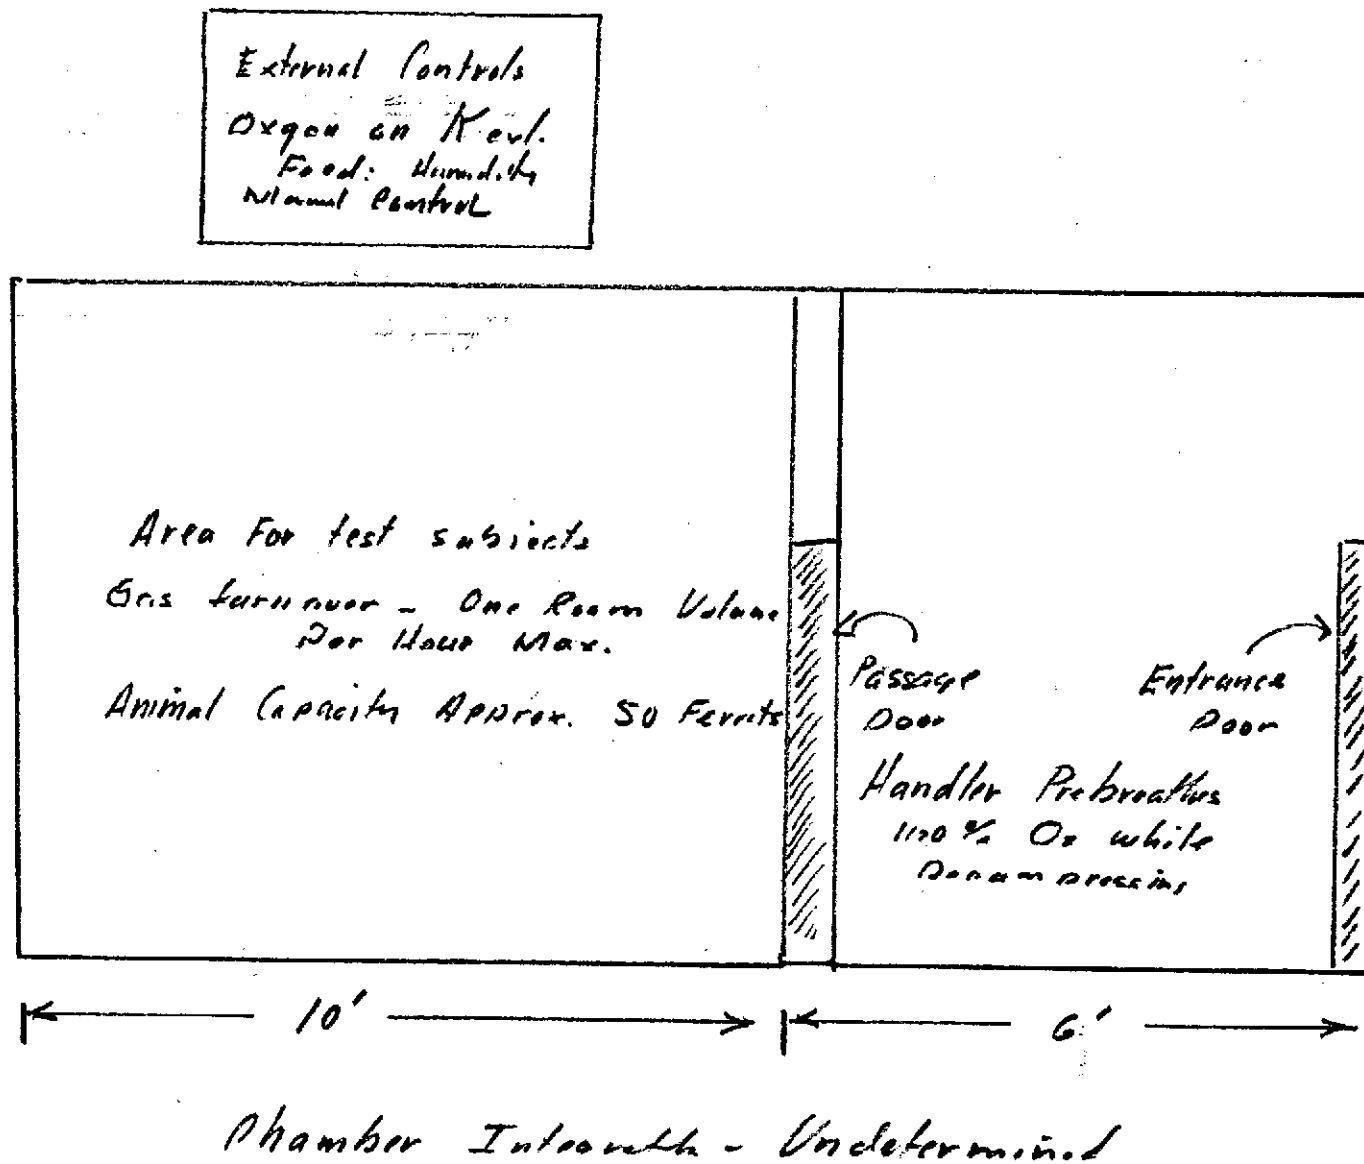 External Controls
Oxgen on
Food: Humidity
Control
Area For test subjects
Gas turnover - One Room Volume
Per Hour Max.
Animal Capacity Approx. 50 Ferrits
Passage
Door
Entrance
Door
Handler Prebreathes
100% O2 while
10'
6'
Chamber - Undetermined